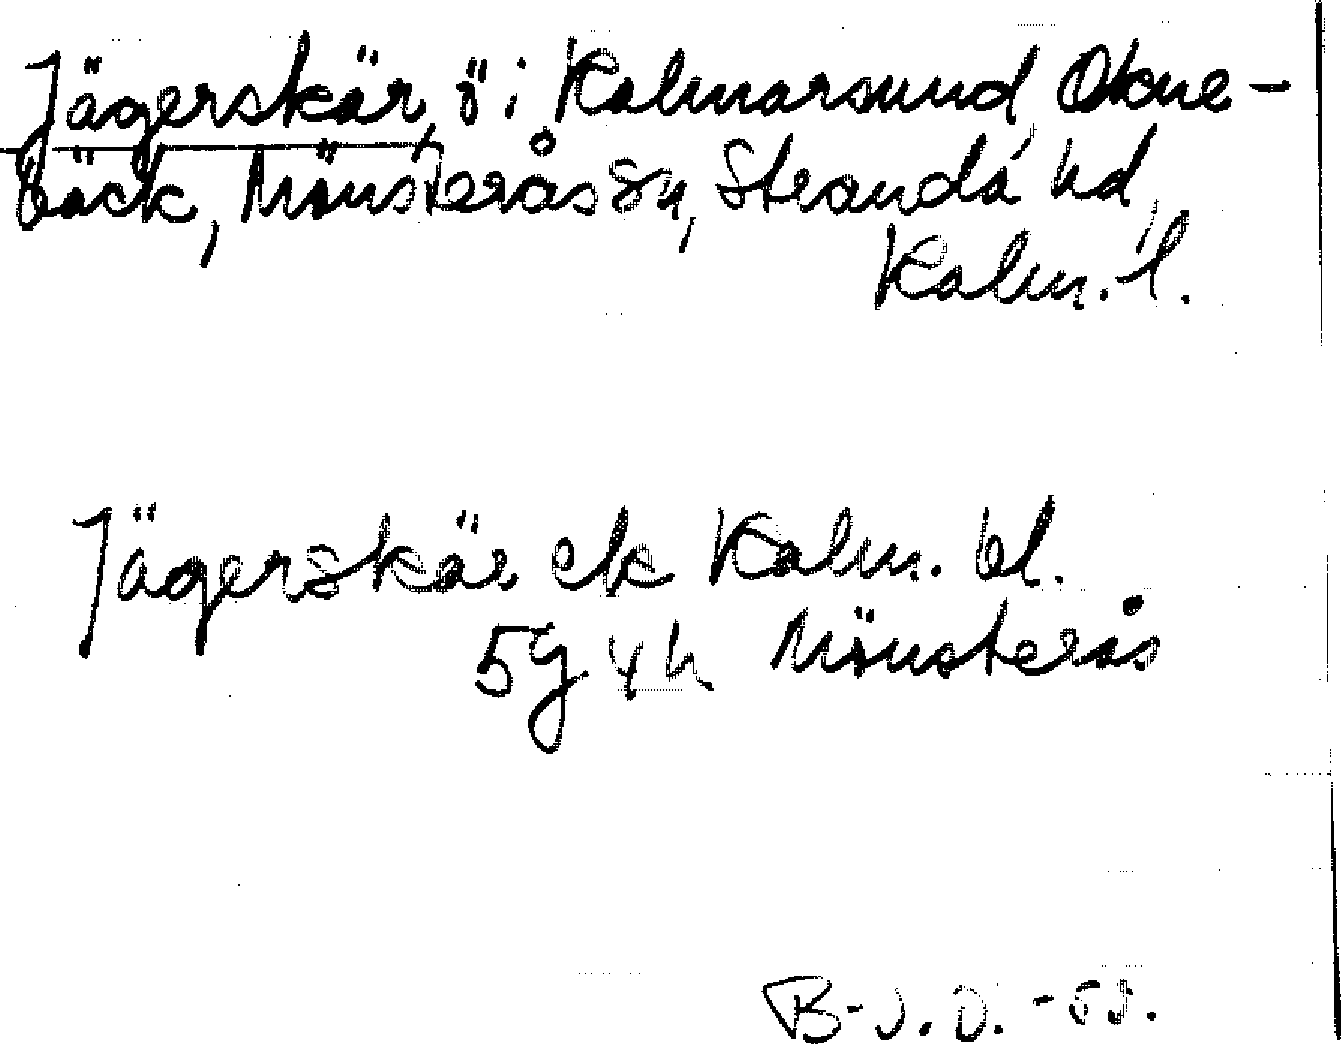 Jägerskär, ö i Kalmarsund Okne-
bäck, Mönsterås sn, Stranda hd,
Kalm. l.
Jägerskär ek Kalm. bl.
5g 4h Mönsterås
B-J.O. -55.